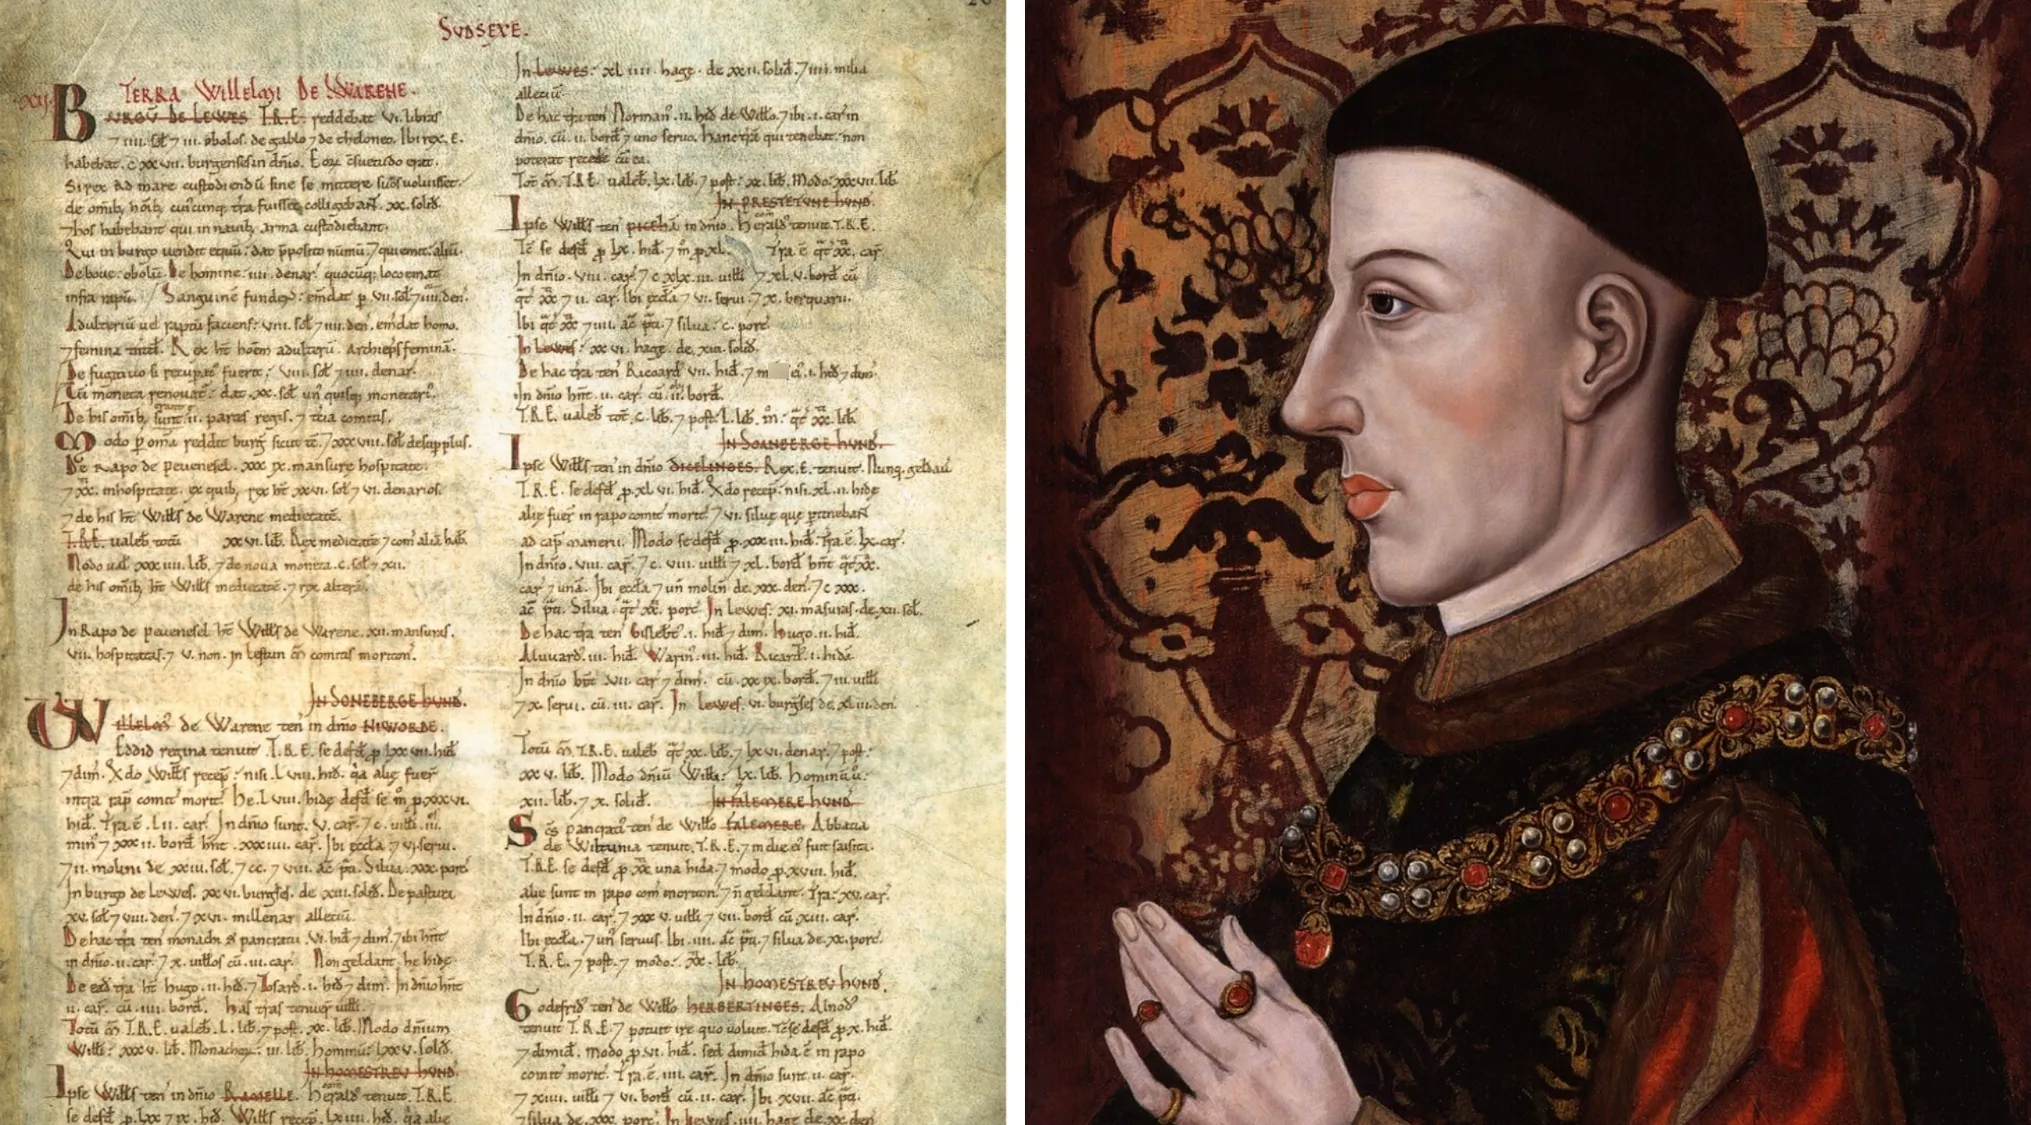 SUDSEXE.
TERRA Willelmi De WARENE.
BURGU DE LEWES T.R.E. reddebat vi. libras
7 iiii. sol 7 iii. obolos. de gablo 7 de theloneo. Ibi rex. E.
habebat. cxxvii. burgenses in dnio. Eoru csuetudo erat.
Si rex ad mare custodiendu sine se mittere suos voluisset.
de omib hoib cuicunq tra fuisset colligebant. xx. solid.
7 hos habebant qui in navib arma custodiebant.
Qui in burgo vendit equu: dat pposito numu 7 que emit. aliu.
De bove: obolu. De homine. iiii. denar. quocuq loco emat
infra rapu. Sanguine fundens: emdat p. vii. sol 7 iiii. den.
Adulteriu vel raptu faciens: viii. sol 7 iiii. den. emdat homo.
7 femina tntd. Rex ht hoem adulteru. Archieps femina.
De fugitivo si recupat fuerit: viii. sol 7 iiii. denar.
Cu moneta renovat: dat. xx. sol. un quisq monetari.
De his omib sunt. ii. partes regis. 7 tcia comitis.
Modo p oma reddit burg sicut tc. 7 xxxviii. sol de supplus.
De Rapo de pevenesel. xxx ix. mansure hospitate.
7 xx. inhospitate. ex quib rex ht xxvi. sol 7 vi. denarios.
7 de his ht Wills de Warene medietate.
T.R.E. valeb totu xxvi. lib. Rex medietate 7 com alia hab.
Modo val xxxiiii. lib. 7 de nova moneta. c. sol 7 xii.
de his omib ht Wills medietate. 7 rex altera.
In Rapo de pevenesel ht Wills de Warene. xii. mansuras.
vii. hospitatas. 7 v. non.
IN SONEBERGE HUND.
Willelm de Warene ten in dnio NIWORDE.
Eddid regina tenuit. T.R.E. se defd p lxxvii. hid
7 dim. Qdo Wills recep: nisi. l viii. hid. qa alie fuer
intra rap comit morit. He. l viii. hide defd se m p xxxvi.
hid. Tra. e. l ii. car. In dnio sunt. v. car. 7 c. villi. iii.
min 7 xxxii. bord hnt. xxxiiii. car. Ibi eccla 7 vi servi.
7 ii. molini de xxiii. sol. 7 cc. 7 viii. ac pti. Silva. xxx porc.
In burgo de Lewes. xxvi. burgses. de xiii. solid. De pastura
xv. sol 7 viii. den. 7 xvi. millenar alleciu.
De hac tra ten monachi S pancratii. vi. hid 7 dim. 7 ibi hnt
in dnio. ii. car. 7 x. villos cu. iii. car. Non geldant he hide.
De ead tra ht hugo. ii. hid. 7 Tosard. i. hid 7 dim. In dnio hnt
ii. car. cu. iiii. bord. has tras tenuer villi.
Totu m T.R.E. valeb. l. lib. 7 post. xx. lib. Modo dnium
Willi: xxxv. lib. Monachor. iii. lib. hominu. lxxv. solid.
IN HOMESTREU HUND.
Ipse Wills ten in dnio RAMELLE. Herald tenuit. T.R.E.
In Lewes: xl iiii. hage. de xxii. solid. 7 iiii. milia
alleciu.
De hac tra ten Norman. ii. hid de Willo. 7 ibi. i. car in
dnio. cu. ii. bord 7 uno servo. Hanc tra qui tenebat. non
poterat recede cu ea.
Tot m. T.R.E. valeb. lx. lib. 7 post: xx. lib. Modo: xxxvii. lib.
IN PRESTETUNE HUND.
Ipse Wills ten PICEHA in dnio. Herald com tenuit. T.R.E.
Tc se defd p lx. hid. 7 m p xl. Tra e qt xx. car.
In dnio. viii. car.
qt xx 7 ii. car. Ibi eccla 7 vi. servi. 7 x. bercarii.
Ibi qt xx 7 iiii. ac pti. 7 silva: c. porc
In Lewes: xxvi. hage. de. xiii. solid.
De hac tra ten Ricoard vii. hid.
In dnio hnt. ii. car. cu. ii. bord.
T.R.E. valeb tot. c. lib. 7 post. l. lib. m: qt xx. lib.
IN SOANBERGE HUND.
Ipse Wills ten in dnio DICELINGES. Rex. E. tenuit. Nunq geldau
T.R.E. se defd p. xl vi. hid. Qdo recep: nisi. xl. ii. hide
alie fuer in rapo comit morit. 7 vi. silve que ptinebant
ad cap manerii. Modo se defd p. xxxiii. hid. Tra e. lx. car.
In dnio. viii. car. 7 c. viii. villi 7 xl. bord hnt qt xx.
car 7 una. Ibi eccla 7 un molin de. xxx. den. 7 c xxx.
ac pti. Silva: qt xx. porc. In Lewes. xi. masuras. de. xii. sol.
De hac tra ten Gislebt. i. hid 7 dim. hugo. ii. hid.
Aluuard. iii. hid. Warin. iii. hid. Ricard. i. hida.
In dnio hnt. vii. car 7 dim. cu. xxix. bord. 7 iii. villi
7 x. servi. cu. iii. car. In Lewes. vi. burgses de. xl iii. den.
Totu m. T.R.E. valeb qt xx. lib. 7 lxvi. denar. 7 post:
xxv. lib. Modo dniu Willi: lx. lib. Hominu u:
xii. lib. 7 x. solid.
IN FALEMERE HUND.
Scs pancrati ten de Willo FALEMERE. Abbatia
de Wiltunia tenuit. T.R.E. 7 in die ei fuit saisita.
T.R.E. se defd p xx una hida. 7 modo p xviii. hid.
alie sunt in rapo com moriton. 7 n geldant. Tra: xv. car.
In dnio. ii. car. 7 xxx v. villi 7 iiii. bord cu xiii. car.
Ibi eccla. 7 un servus. Ibi. iii. ac pti. 7 silva de. xx. porc.
T.R.E. 7 post. 7 modo: xx. lib.
IN HOMESTREU HUND.
Godefrid ten de Willo HERBERTINGES. Alnod
tenuit T.R.E. 7 potuit ire quo voluit. Tc se defd p x. hid.
7 dimid. modo p vi. hid. sed dimid hida e in rapo
comit morit. Tra. e. iiii. car. In dnio sunt. ii. car.
7 xiiii. villi 7 vi. bord cu. ii. car. Ibi xvii. ac pti.
7 silva de. xxx. porc. In Lewes. iii. hage de. xx. den